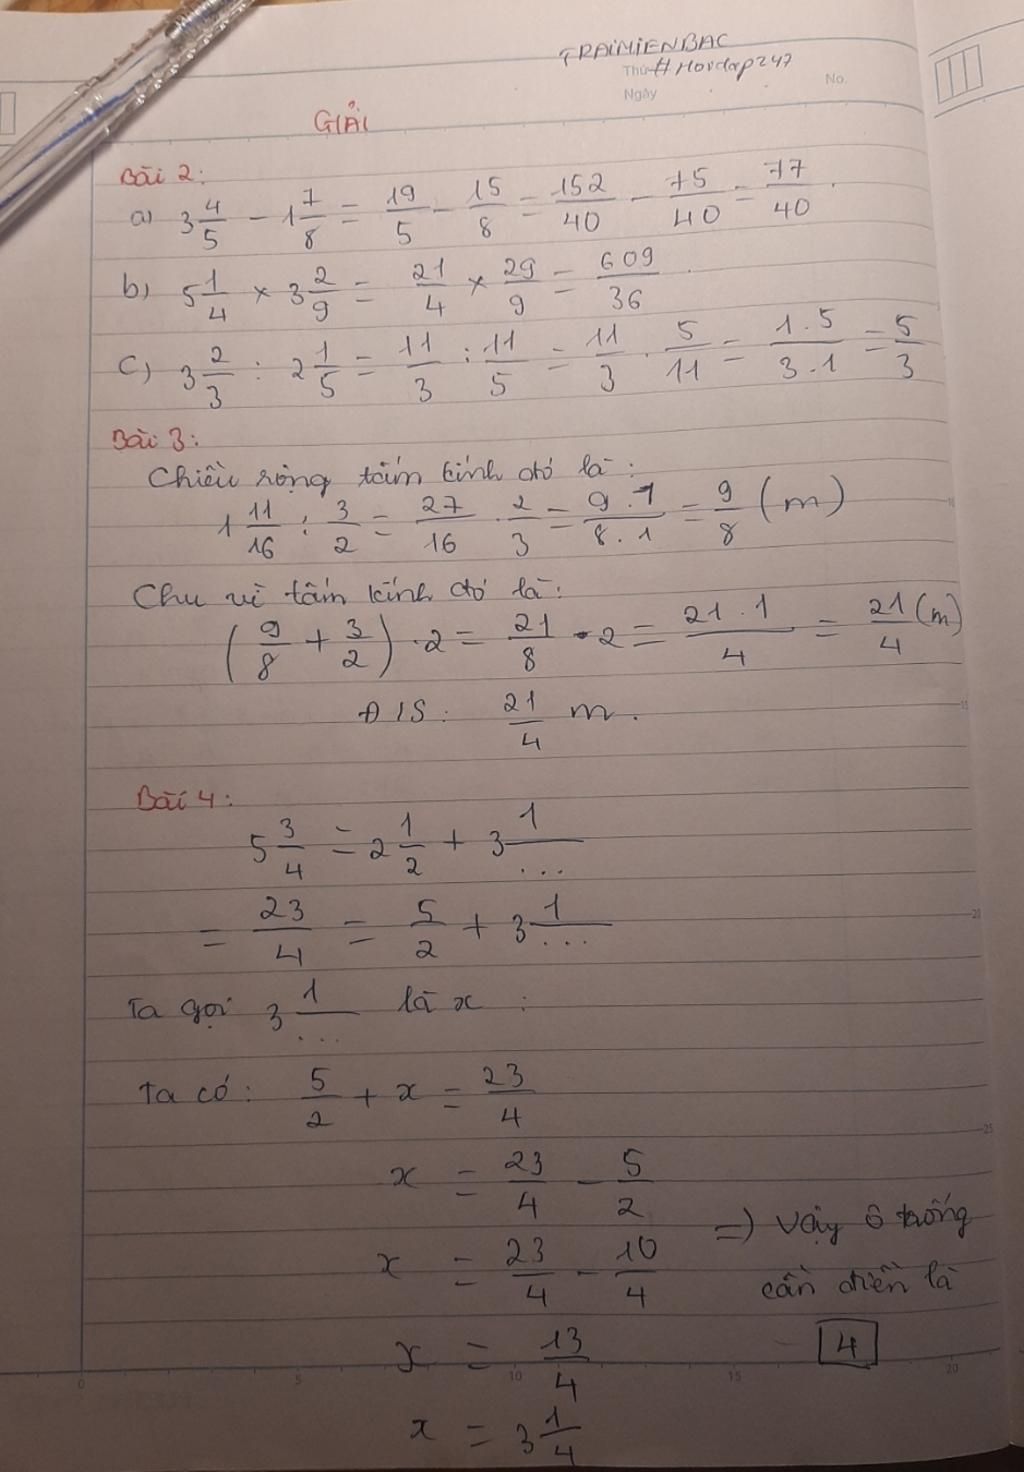 TRAIMIENBAC
Thứ #Hoidap247
No.
Ngày
GIẢI
Bài 2:
a) 3 4/5 - 1 7/8 = 19/5 - 15/8 = 152/40 - 75/40 = 77/40.
b) 5 1/4 × 3 2/9 = 21/4 × 29/9 = 609/36.
c) 3 2/3 : 2 1/5 = 11/3 : 11/5 = 11/3 . 5/11 = 1.5/3.1 = 5/3
Bài 3:
Chiều rộng tấm kính đó là:
1 11/16 : 3/2 = 27/16 . 2/3 = 9.1/8.1 = 9/8 (m)
Chu vi tấm kính đó là:
(9/8 + 3/2) . 2 = 21/8 . 2 = 21.1/4 = 21/4 (m)
Đ/S: 21/4 m.
Bài 4:
5 3/4 = 2 1/2 + 3 1/...
= 23/4 = 5/2 + 3 1/...
Ta gọi 3 1/... là x:
Ta có: 5/2 + x = 23/4
x = 23/4 - 5/2
x = 23/4 - 10/4
x = 13/4
x = 3 1/4
=) Vậy ô trống
cần điền là
4
0 5 10 15 20
15
20
25